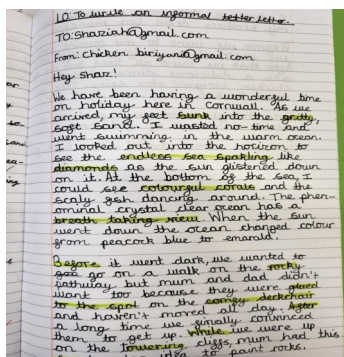 LO: To write an informal letter letter.
TO: Shaziah@gmail.com
From: Chicken biriyani@gmail.com
Hey Shaz!
We have been having a wonderful time
on holiday here in Cornwall. As we
arrived, my feet sunk into the gritty,
soft sand. I wasted no-time and
went swimming in the warm ocean.
I looked out into the horizon to
see the endless sea spakling like
diamonds as the sun glistened down
on it. At the bottom of the sea, I
could see colourful corals and the
scaly fish dancing around. The phen-
ominal crystal clear ocean has a
breath taking view. When the sun
went down the ocean changed colour
from peacock blue to emarald.
Before it went dark, we wanted to
go on a walk on the rocky
pathway but mum and dad didn't
want too because they were glued
to the spot on the comfy deckchair
and haven't moved all day. After
a long time we finally convinced
them to get up. While we were up
on the towering cliffs, mum had this
idea to paint rocks.